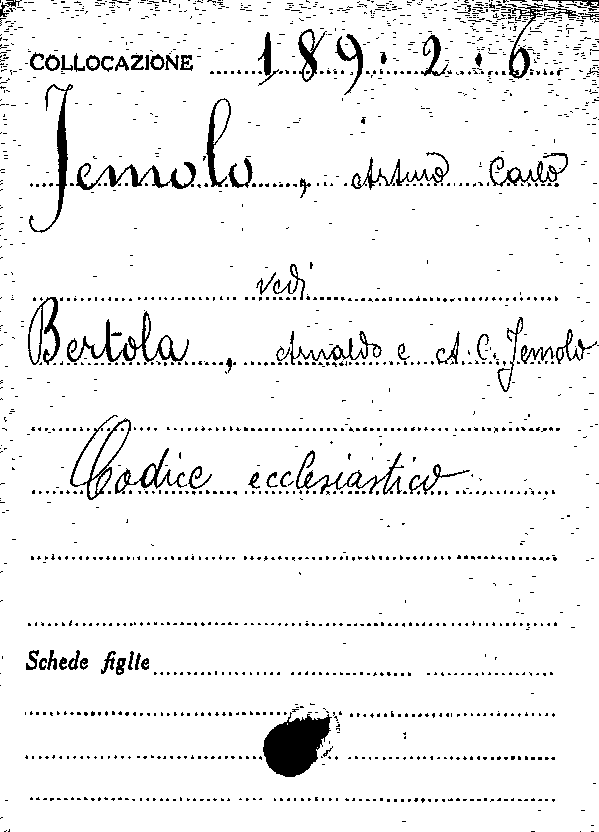 COLLOCAZIONE 189.2.6
Jemolo, Arturo Carlo
vedi
Bertola, Arnaldo e A.C. Jemolo
Codice ecclesiastico
Schede figlie